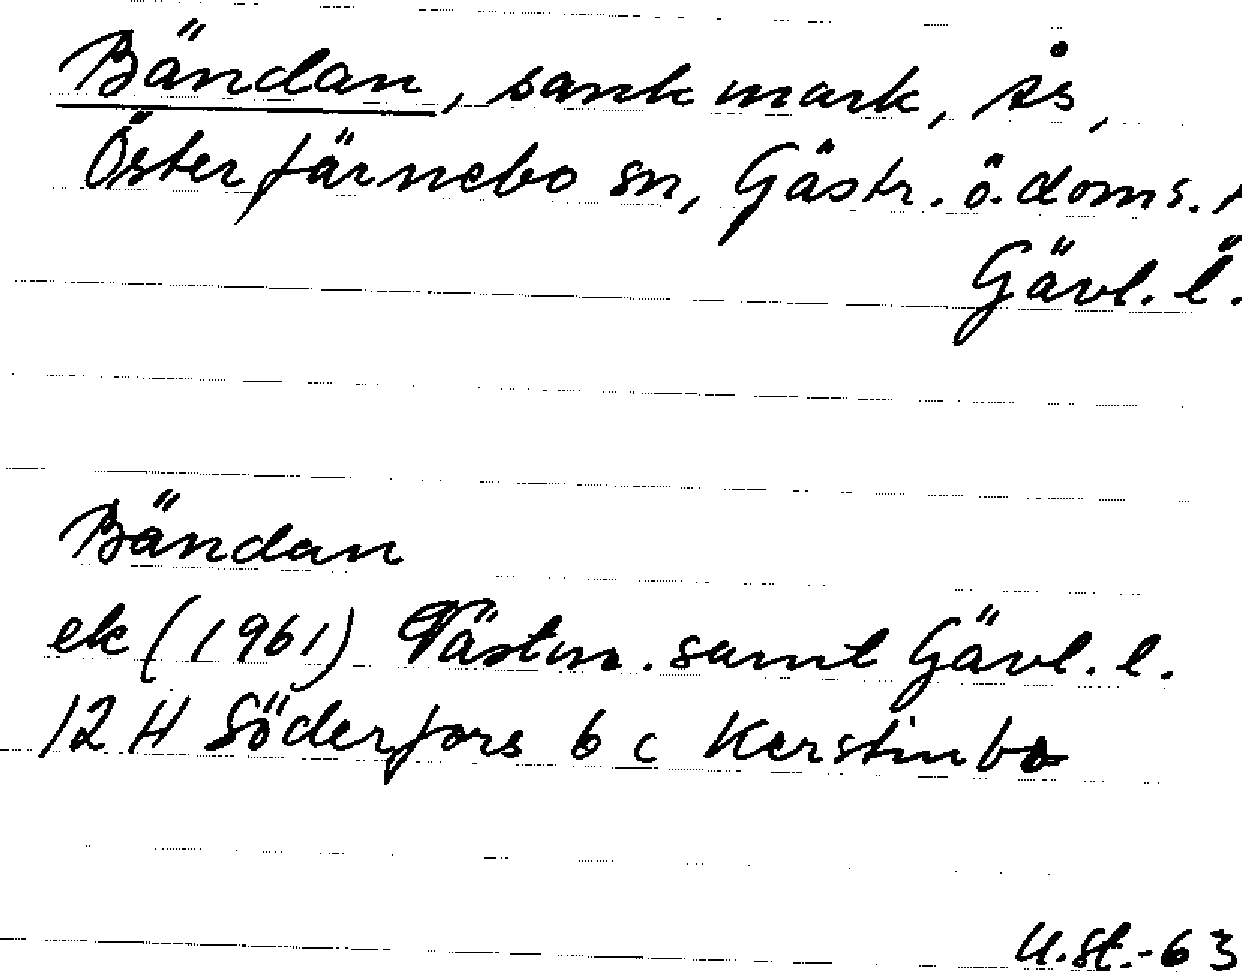 Bändan, sank mark, ås,
Österfärnebo sn, Gästr. ö. doms.
Gävl. l.
Bändan
ek (1961) Västm. samt Gävl. l.
12 H Söderfors 6 c Kerstinbo
U.St.-63